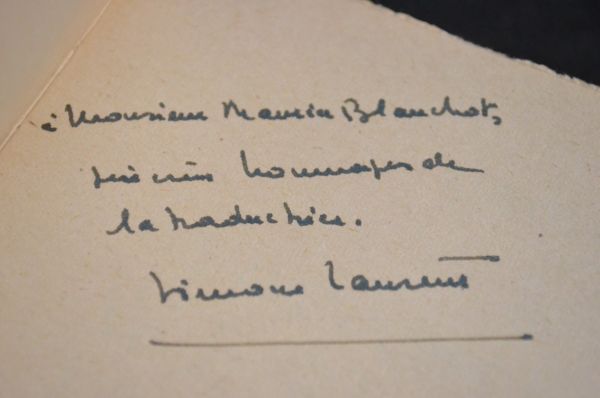 à Monsieur Maurice Blanchot,
sincères hommages de
la traductrice.
Simone Laurent